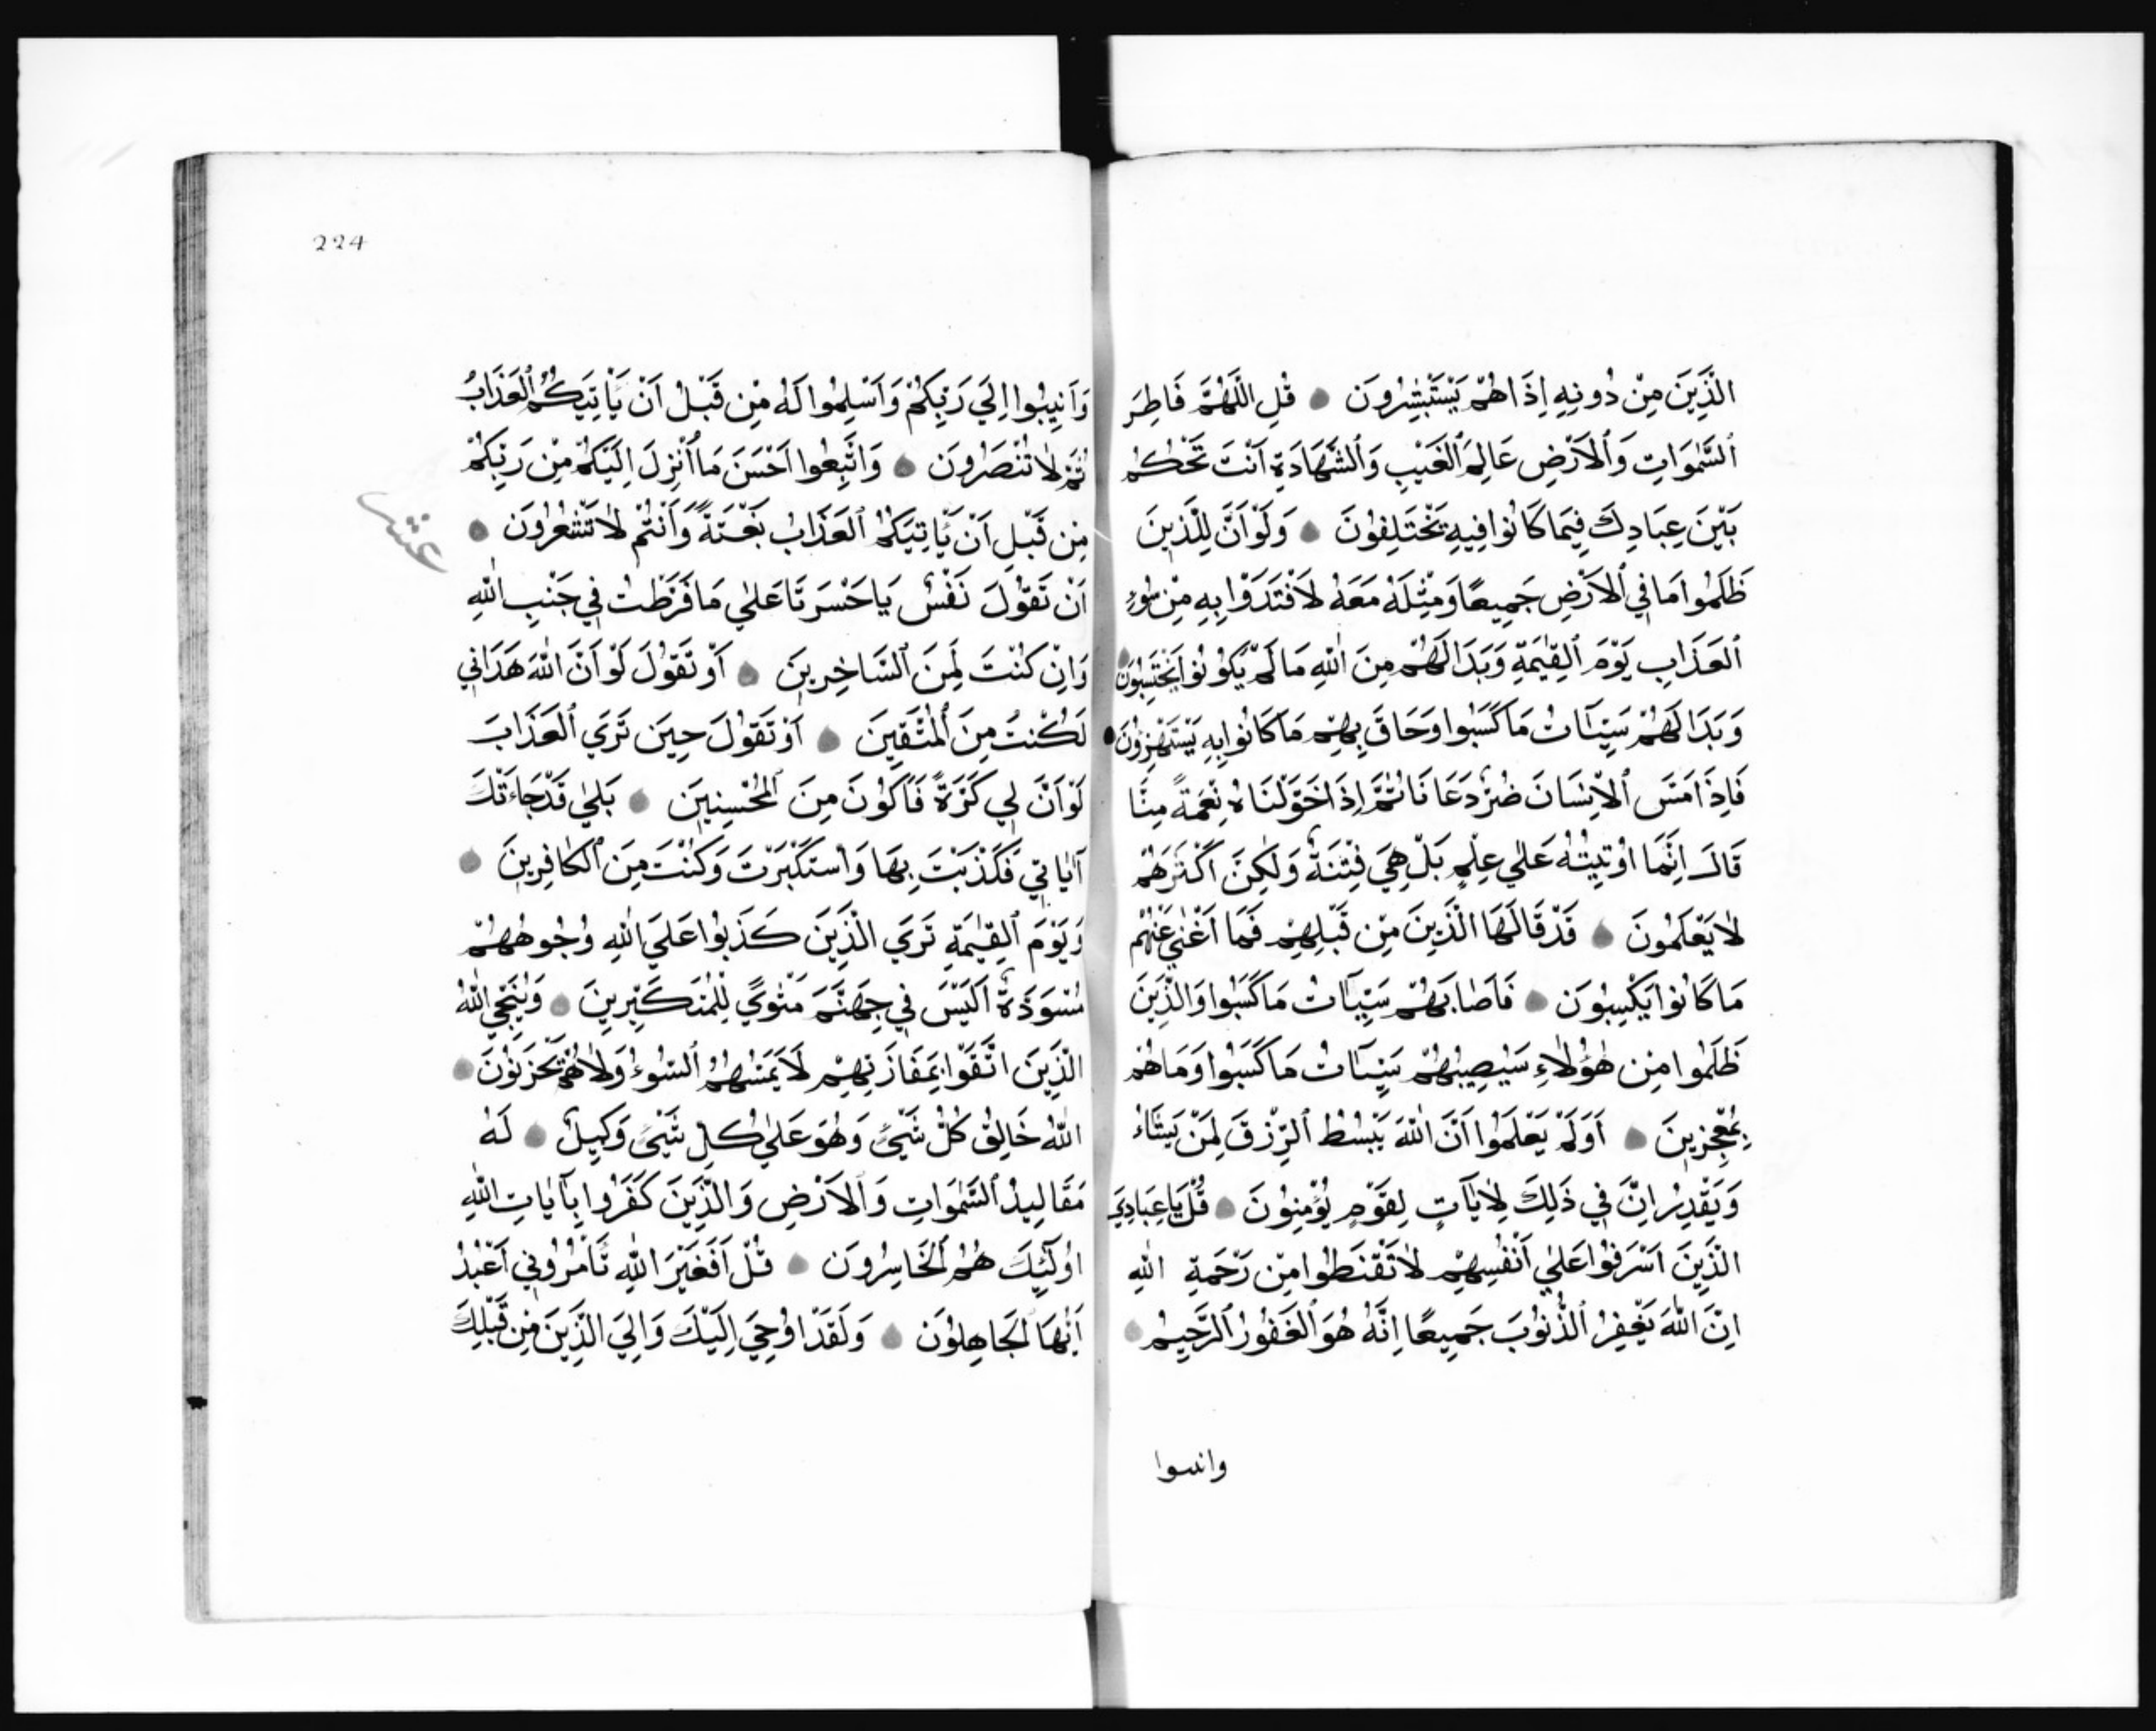 الَّذِينَ مِنْ دُونِهِ إِذَا هُمْ يَسْتَبْشِرُونَ قُلِ اللَّهُمَّ فَاطِرَ
ٱلسَّمٰوَاتِ وَٱلْاَرْضِ عَالِمَ ٱلْغَيْبِ وَٱلشَّهَادَةِ اَنْتَ تَحْكُمُ
بَيْنَ عِبَادِكَ فِيمَا كَانُوا فِيهِ يَخْتَلِفُونَ وَلَوْ اَنَّ لِلَّذِينَ
ظَلَمُوا مَا فِي ٱلْاَرْضِ جَمِيعًا وَمِثْلَهُ مَعَهُ لَافْتَدَوْا بِهِ مِنْ سُوءِ
ٱلْعَذَابِ يَوْمَ ٱلْقِيٰمَةِ وَبَدَا لَهُمْ مِنَ اللّٰهِ مَا لَمْ يَكُونُوا يَحْتَسِبُونَ
وَبَدَا لَهُمْ سَيِّـَٔاتُ مَا كَسَبُوا وَحَاقَ بِهِمْ مَا كَانُوا بِهِ يَسْتَهْزِؤُنَ
فَاِذَا مَسَّ ٱلْاِنْسَانَ ضُرٌّ دَعَانَا ثُمَّ اِذَا خَوَّلْنَاهُ نِعْمَةً مِنَّا
قَالَ اِنَّمَا اُوتِيتُهُ عَلٰي عِلْمٍ بَلْ هِيَ فِتْنَةٌ وَلٰكِنَّ اَكْثَرَهُمْ
لَا يَعْلَمُونَ قَدْ قَالَهَا الَّذِينَ مِنْ قَبْلِهِمْ فَمَا اَغْنٰي عَنْهُمْ
مَا كَانُوا يَكْسِبُونَ فَاَصَابَهُمْ سَيِّـَٔاتُ مَا كَسَبُوا وَالَّذِينَ
ظَلَمُوا مِنْ هٰؤُلَاءِ سَيُصِيبُهُمْ سَيِّـَٔاتُ مَا كَسَبُوا وَمَا هُمْ
بِمُعْجِزِينَ اَوَلَمْ يَعْلَمُوا اَنَّ اللّٰهَ يَبْسُطُ ٱلرِّزْقَ لِمَنْ يَشَاءُ
وَيَقْدِرُ اِنَّ فِي ذٰلِكَ لَاٰيَاتٍ لِقَوْمٍ يُؤْمِنُونَ قُلْ يَا عِبَادِيَ
الَّذِينَ اَسْرَفُوا عَلٰي اَنْفُسِهِمْ لَا تَقْنَطُوا مِنْ رَحْمَةِ اللّٰهِ
اِنَّ اللّٰهَ يَغْفِرُ ٱلذُّنُوبَ جَمِيعًا اِنَّهُ هُوَ ٱلْغَفُورُ ٱلرَّحِيمُ
وانيبوا
224
وَاَنِيبُوا اِلَي رَبِّكُمْ وَاَسْلِمُوا لَهُ مِنْ قَبْلِ اَنْ يَأْتِيَكُمُ ٱلْعَذَابُ
ثُمَّ لَا تُنْصَرُونَ وَاتَّبِعُوا اَحْسَنَ مَا اُنْزِلَ اِلَيْكُمْ مِنْ رَبِّكُمْ
مِنْ قَبْلِ اَنْ يَأْتِيَكُمُ ٱلْعَذَابُ بَغْتَةً وَاَنْتُمْ لَا تَشْعُرُونَ
عشر
اَنْ تَقُولَ نَفْسٌ يَا حَسْرَتَا عَلٰي مَا فَرَّطْتُ فِي جَنْبِ اللّٰهِ
وَاِنْ كُنْتُ لَمِنَ ٱلسَّاخِرِينَ اَوْ تَقُولَ لَوْ اَنَّ اللّٰهَ هَدَانِي
لَكُنْتُ مِنَ ٱلْمُتَّقِينَ اَوْ تَقُولَ حِينَ تَرَي ٱلْعَذَابَ
لَوْ اَنَّ لِي كَرَّةً فَاَكُونَ مِنَ ٱلْمُحْسِنِينَ بَلٰي قَدْ جَاءَتْكَ
اٰيَاتِي فَكَذَّبْتَ بِهَا وَاسْتَكْبَرْتَ وَكُنْتَ مِنَ ٱلْكَافِرِينَ
وَيَوْمَ ٱلْقِيٰمَةِ تَرَي الَّذِينَ كَذَبُوا عَلَي اللّٰهِ وُجُوهُهُمْ
مُسْوَدَّةٌ اَلَيْسَ فِي جَهَنَّمَ مَثْوًي لِلْمُتَكَبِّرِينَ وَيُنَجِّي اللّٰهُ
الَّذِينَ اتَّقَوْا بِمَفَازَتِهِمْ لَا يَمَسُّهُمُ ٱلسُّوءُ وَلَا هُمْ يَحْزَنُونَ
اللّٰهُ خَالِقُ كُلِّ شَيْءٍ وَهُوَ عَلٰي كُلِّ شَيْءٍ وَكِيلٌ لَهُ
مَقَالِيدُ ٱلسَّمٰوَاتِ وَٱلْاَرْضِ وَالَّذِينَ كَفَرُوا بِآيَاتِ اللّٰهِ
اُولٰٓئِكَ هُمُ ٱلْخَاسِرُونَ قُلْ اَفَغَيْرَ اللّٰهِ تَأْمُرُونِي اَعْبُدُ
اَيُّهَا ٱلْجَاهِلُونَ وَلَقَدْ اُوحِيَ اِلَيْكَ وَاِلَي الَّذِينَ مِنْ قَبْلِكَ